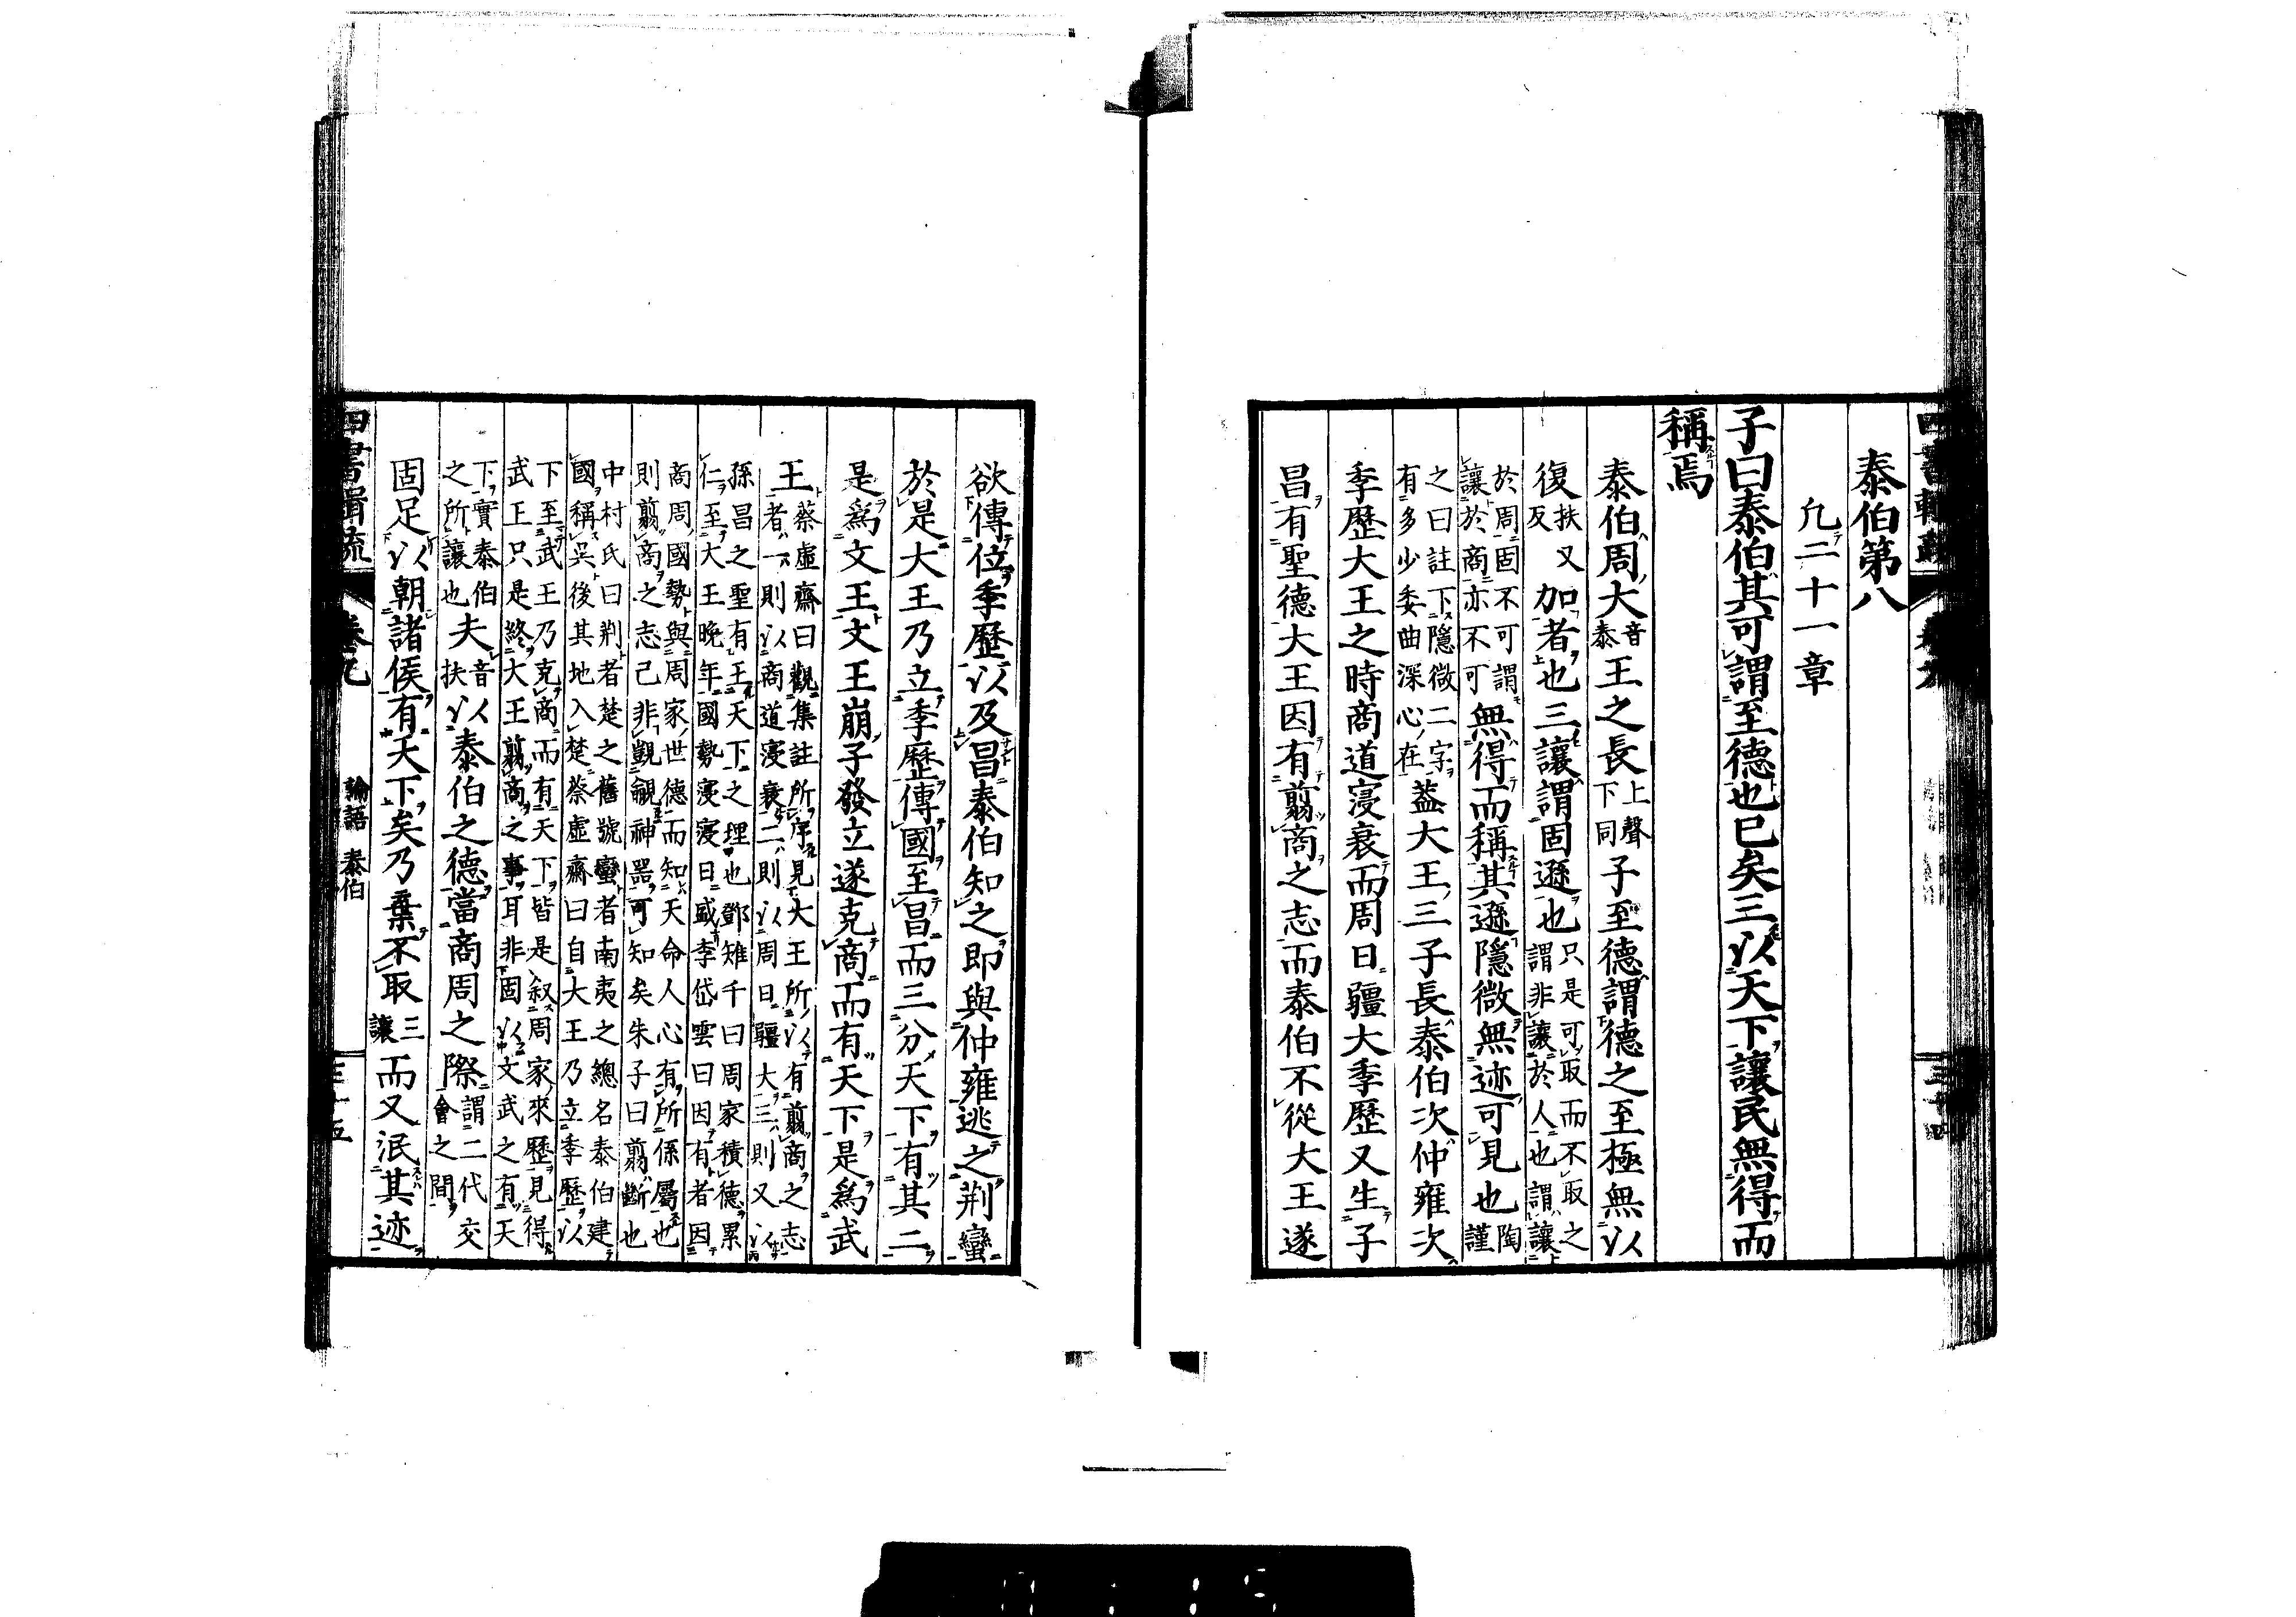 泰伯第八
凢二十一章
子曰泰伯其可謂至德也已矣三以天下讓民無得而
稱焉
泰伯周大音泰王之長上聲下同子至德謂德之至極無以
復扶又反加者也三讓謂固遜也只是可取而不取之謂非讓於人也謂讓
於周固不可謂讓於商亦不可無得而稱其遜隱微無迹可見也陶謹
之曰註下隱微二字有多少委曲深心在蓋大王三子長泰伯次仲雍次
季歷大王之時商道寖衰而周日彊大季歷又生子
昌有聖德大王因有翦商之志而泰伯不從大王遂
欲傳位季歷以及昌泰伯知之即與仲雍逃之荆蠻
於是大王乃立季歷傳國至昌而三分天下有其二
是爲文王文王崩子發立遂克商而有天下是爲武
王蔡虛齋曰觀集註所序見大王所以有翦商之志者一則以商道寖衰二則以周日彊大三則又以
孫昌之聖有王天下之理也鄧雉千曰周家積德累仁至大王晚年國勢寖寖日盛李岱雲曰因有者因
商周國勢與周家世德而知天命人心有所係屬也則翦商之志己非覬覦神器可知矣朱子曰翦斷也
中村氏曰荆者楚之舊號蠻者南夷之總名泰伯建國稱吳後其地入楚蔡虛齋曰自大王乃立季歷以
下至武王乃克商而有天下皆是叙周家來歷見得武王只是終大王翦商之事耳非固以文武之有天
下實泰伯之所讓也夫音扶以泰伯之德當商周之際謂二代交會之間
固足以朝諸侯有天下矣乃棄不取三讓而又泯其迹
四書輯疏
卷九
論語 泰伯
三十五